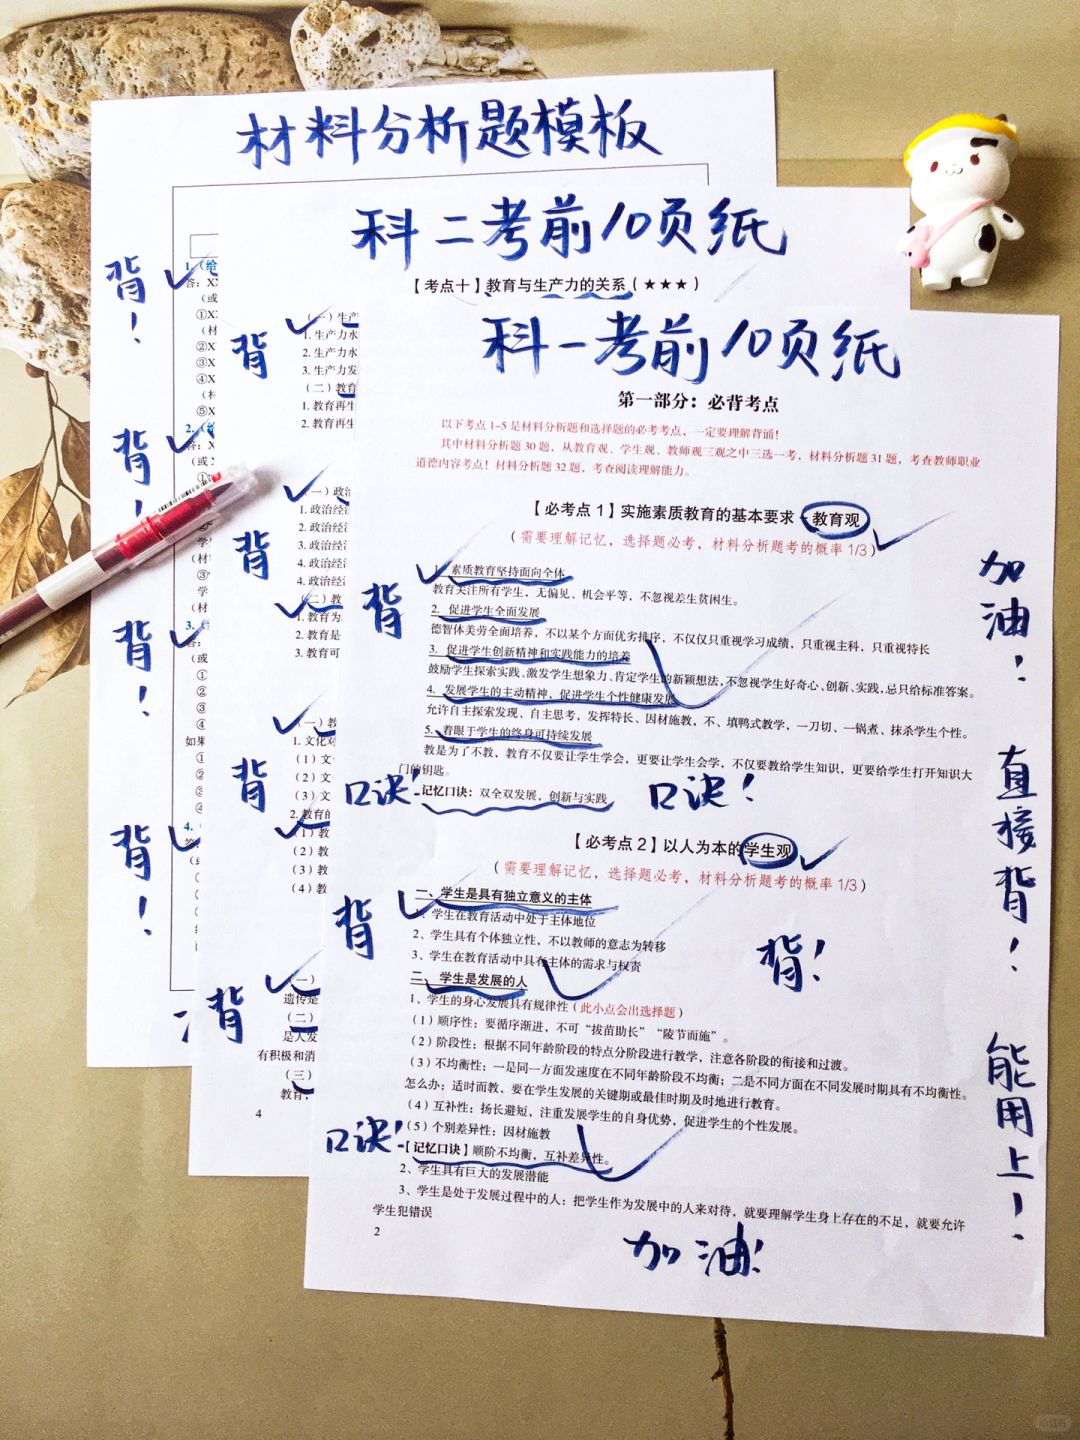 材料分析题模板
科二考前10页纸
【考点十】教育与生产力的关系(★★★)
科一考前10页纸
第一部分:必背考点
以下考点1-5是材料分析题和选择题的必考考点,一定要理解背诵!
其中材料分析题30题,从教育观、学生观、教师观三观之中三选一考,材料分析题31题,考查教师职业
道德内容考点!材料分析题32题,考查阅读理解能力。
【必考点1】实施素质教育的基本要求-教育观
(需要理解记忆,选择题必考,材料分析题考的概率1/3)
1. 素质教育坚持面向全体
教育关注所有学生,无偏见、机会平等,不忽视差生贫困生。
2. 促进学生全面发展
德智体美劳全面培养,不以某个方面优劣排序,不仅仅只重视学习成绩,只重视主科,只重视特长
3. 促进学生创新精神和实践能力的培养
鼓励学生探索实践、激发学生想象力、肯定学生的新颖想法,不忽视学生好奇心、创新、实践,忌只给标准答案。
4. 发展学生的主动精神,促进学生个性健康发展
允许自主探索发现,自主思考,发挥特长、因材施教,不、填鸭式教学,一刀切、一锅煮、抹杀学生个性。
5. 着眼于学生的终身可持续发展
教是为了不教,教育不仅要让学生学会,更要让学生会学,不仅要教给学生知识,更要给学生打开知识大
门的钥匙。
口诀!
记忆口诀:双全双发展,创新与实践
口诀!
【必考点2】以人为本的学生观
(需要理解记忆,选择题必考,材料分析题考的概率1/3)
一、学生是具有独立意义的主体
1、学生在教育活动中处于主体地位
2、学生具有个体独立性,不以教师的意志为转移
3、学生在教育活动中具有主体的需求与权责
二、学生是发展的人
1、学生的身心发展具有规律性(此小点会出选择题)
(1)顺序性:要循序渐进,不可“拔苗助长”“陵节而施”。
(2)阶段性:根据不同年龄阶段的特点分阶段进行教学,注意各阶段的衔接和过渡。
(3)不均衡性:一是同一方面发速度在不同年龄阶段不均衡;二是不同方面在不同发展时期具有不均衡性。
怎么办:适时而教、要在学生发展的关键期或最佳时期及时地进行教育。
(4)互补性:扬长避短,注重发展学生的自身优势,促进学生的个性发展。
(5)个别差异性:因材施教
口诀!
【记忆口诀】顺阶不均衡,互补差异性。
2、学生具有巨大的发展潜能
3、学生是处于发展过程中的人:把学生作为发展中的人来对待,就要理解学生身上存在的不足,就要允许
学生犯错误
2
加油!
背!
背
背
加油!
直接背!
能用上!
背!
背!
背!
背!
背
背
背
背
(一)生产
1. 生产力水
2. 生产力水
3. 生产力发
(二)教育
1. 教育再生
2. 教育再生
(一)政治
1. 政治经济
2. 政治经济
3. 政治经济
4. 政治经济
(二)教
1. 教育为
2. 教育是
3. 教育可
(一)教
1. 文化对
(1)文
(2)文
(3)文
2. 教育的
(1)教
(2)教
(3)教
(4)教
(一)
遗传是
(二)
是人发
有积极和消
(三)
教育,
4
小红书